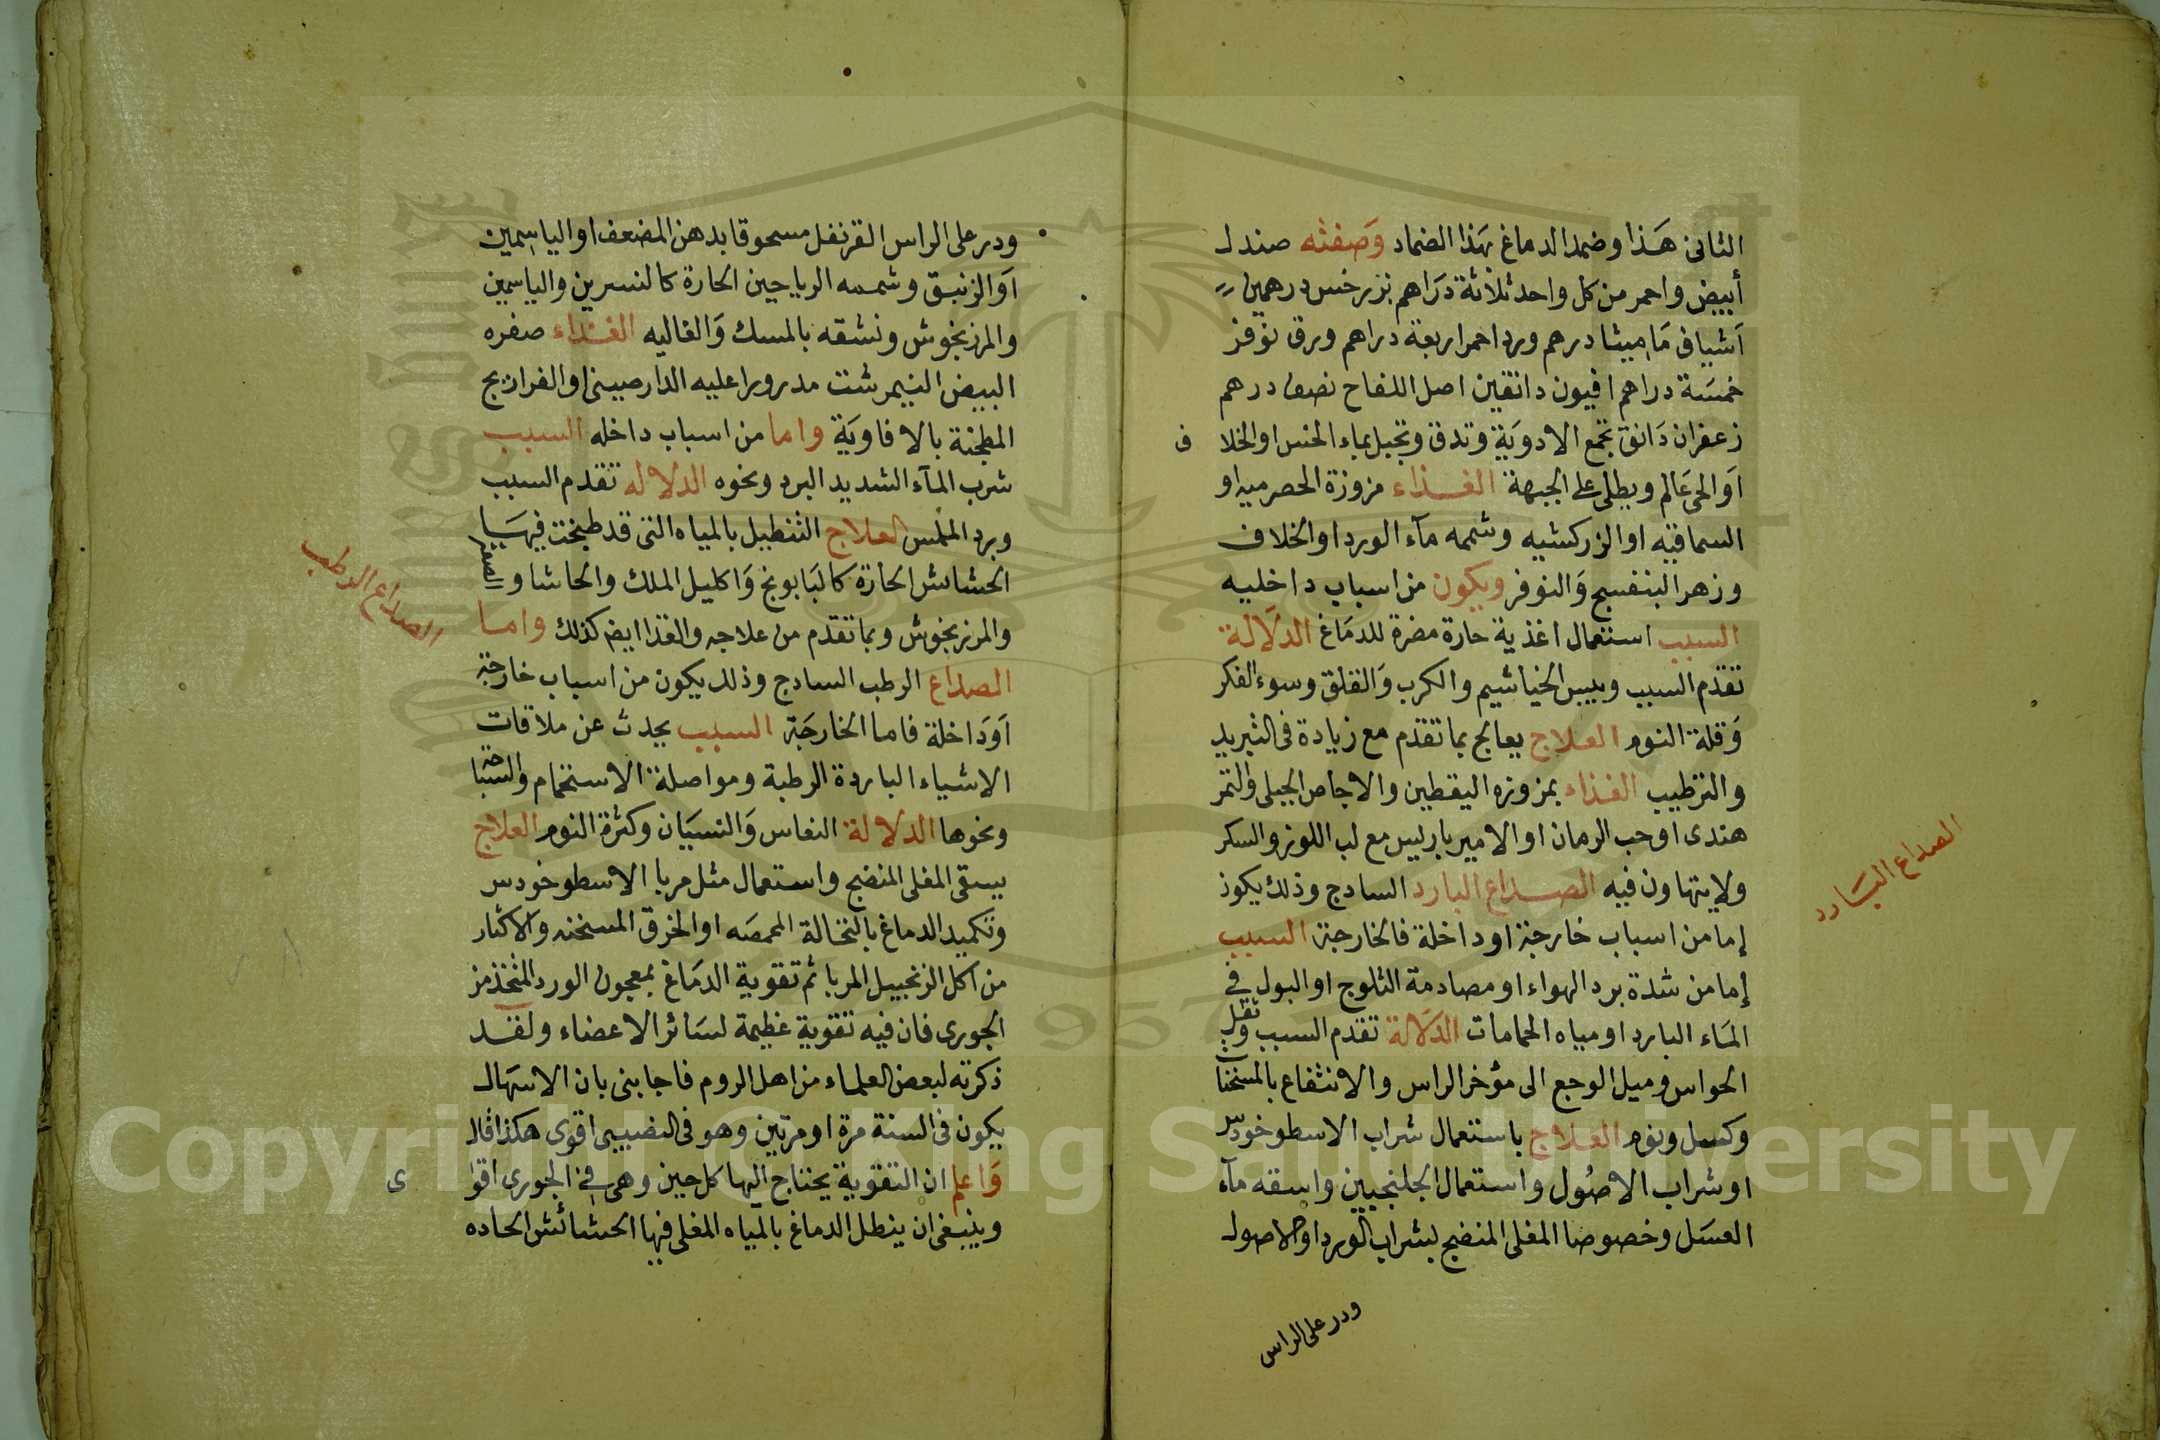 الثانى هَذا وضمد الدماغ بهَذا الضماد وَصفته صندل
أبيض واحمر من كل واحد ثلاثة دَراهم بزر خس درهمين
اَشياف مَاميثا درهم ورد احمر اربعة دراهم ورق نوفر
خمسَة دراهم افيون دانقين اصل اللفاح نصف درهم
زعفران دَانق تجمع الادويَة وتدق وتجبل بماء الخس او الخلا ف
اَو الحى عَالم ويطلى على الجبهة الغذاء مزوزة الحصرميه او
السماقيه او الزركشيه وشمه مآء الورد او الخلاف
وزهر البنفسج وَالنوفر ويكون من اسباب داخليه
السبب استعمال اغذية حارة مضرة للدمَاغ الدلَالة
تقدم السبب ويبس الخياشيم والكرب وَالقلق وسوء الفكر
وَقلة النوم العلاج يعالج بما تقدم مع زيادة فى التبريد
والترطيب الغذاء بمزوزه اليقطين والاجاص الجبلى والتمر
هندى او حب الرمان او الامير باريس مع لب اللوز والسكر
ولا يتهاون فيه الصداع البارد السادج وذلك يكون
إما من اسباب خارجة او داخلة فالخارجة السبب
إما من شدة برد الهواء او مصادمة الثلوج او البول فى
المَاء البارد او مياه الحمامات الدلَالة تقدم السبب وثقل
الحواس وميل الوجع الى مؤخر الراس والانتفاع بالمسخنا
وكسل ونوم العلاج باستعمال شراب الاسطوخودس
او شراب الاصُول واستعمال الجلنجبين واسقه مآء
العسَل وخصوصا المغلى المنضج بشراب الورد او الاصول
ودر على الراس
الصداع البَارد
ودر على الراس القرنفل مسحوقا بدهن المضعف او الياسمين
اَو الزنبق وشمه الرياحين الحارة كالنسرين والياسمين
والمرزنجوش ونشقه بالمسك وَالغاليه الغذاء صفره
البيض النيمرشت مدرورا عليه الدارصينى او الفراريج
المطجنة بالافاويَة واما من اسباب داخله السبب
شرب المآء الشديد البرد ونحوه الدلاله تقدم السبب
وبرد الملمس العلاج التنطيل بالمياه التى قد طبخت فيهَا
الحشاش الحارة كالبَابونج وَاكليل الملك والحاشا والصعتر
والمرزنجوش وبما تقدم من علاجه والغذا ايضا كذلك واما
الصداع الرطب السادج وذلك يكون من اسباب خارجة
اَو دَاخلة فاما الخارجَة السبب يحدث عن ملاقات
الاشياء الباردة الرطبة ومواصلة الاستحمام والسباحة
ونحوها الدلالة النعاس وَالنسيَان وكثرة النوم العلاج
يسقى المغلى المنضج واستعمال مثل مربا الاسطوخودس
وتكميد الدماغ بالنخالة المحمصَه او الخرق المسخنه والاكثار
من اكل الزنجبيل المربا ثم تقوية الدمَاغ بمعجون الورد المتخذ من
الجورى فان فيه تقوية عظيمة لسَائر الاعضاء ولقد
ذكرته لبعض العلماء من اهل الروم فاجابنى بان الاسهال
يكون فى السنة مرة او مرتين وهو فى النصيبى اقوى هكذا قال
وَاعلم ان التقوية يحتاج اليها كل حين وهى فى الجورى اقوا ى
وينبغى ان ينطل الدماغ بالمياه المغلى فيها الحشائش الحاده
الصداع الرطب
Copyright © King Saud University
1957